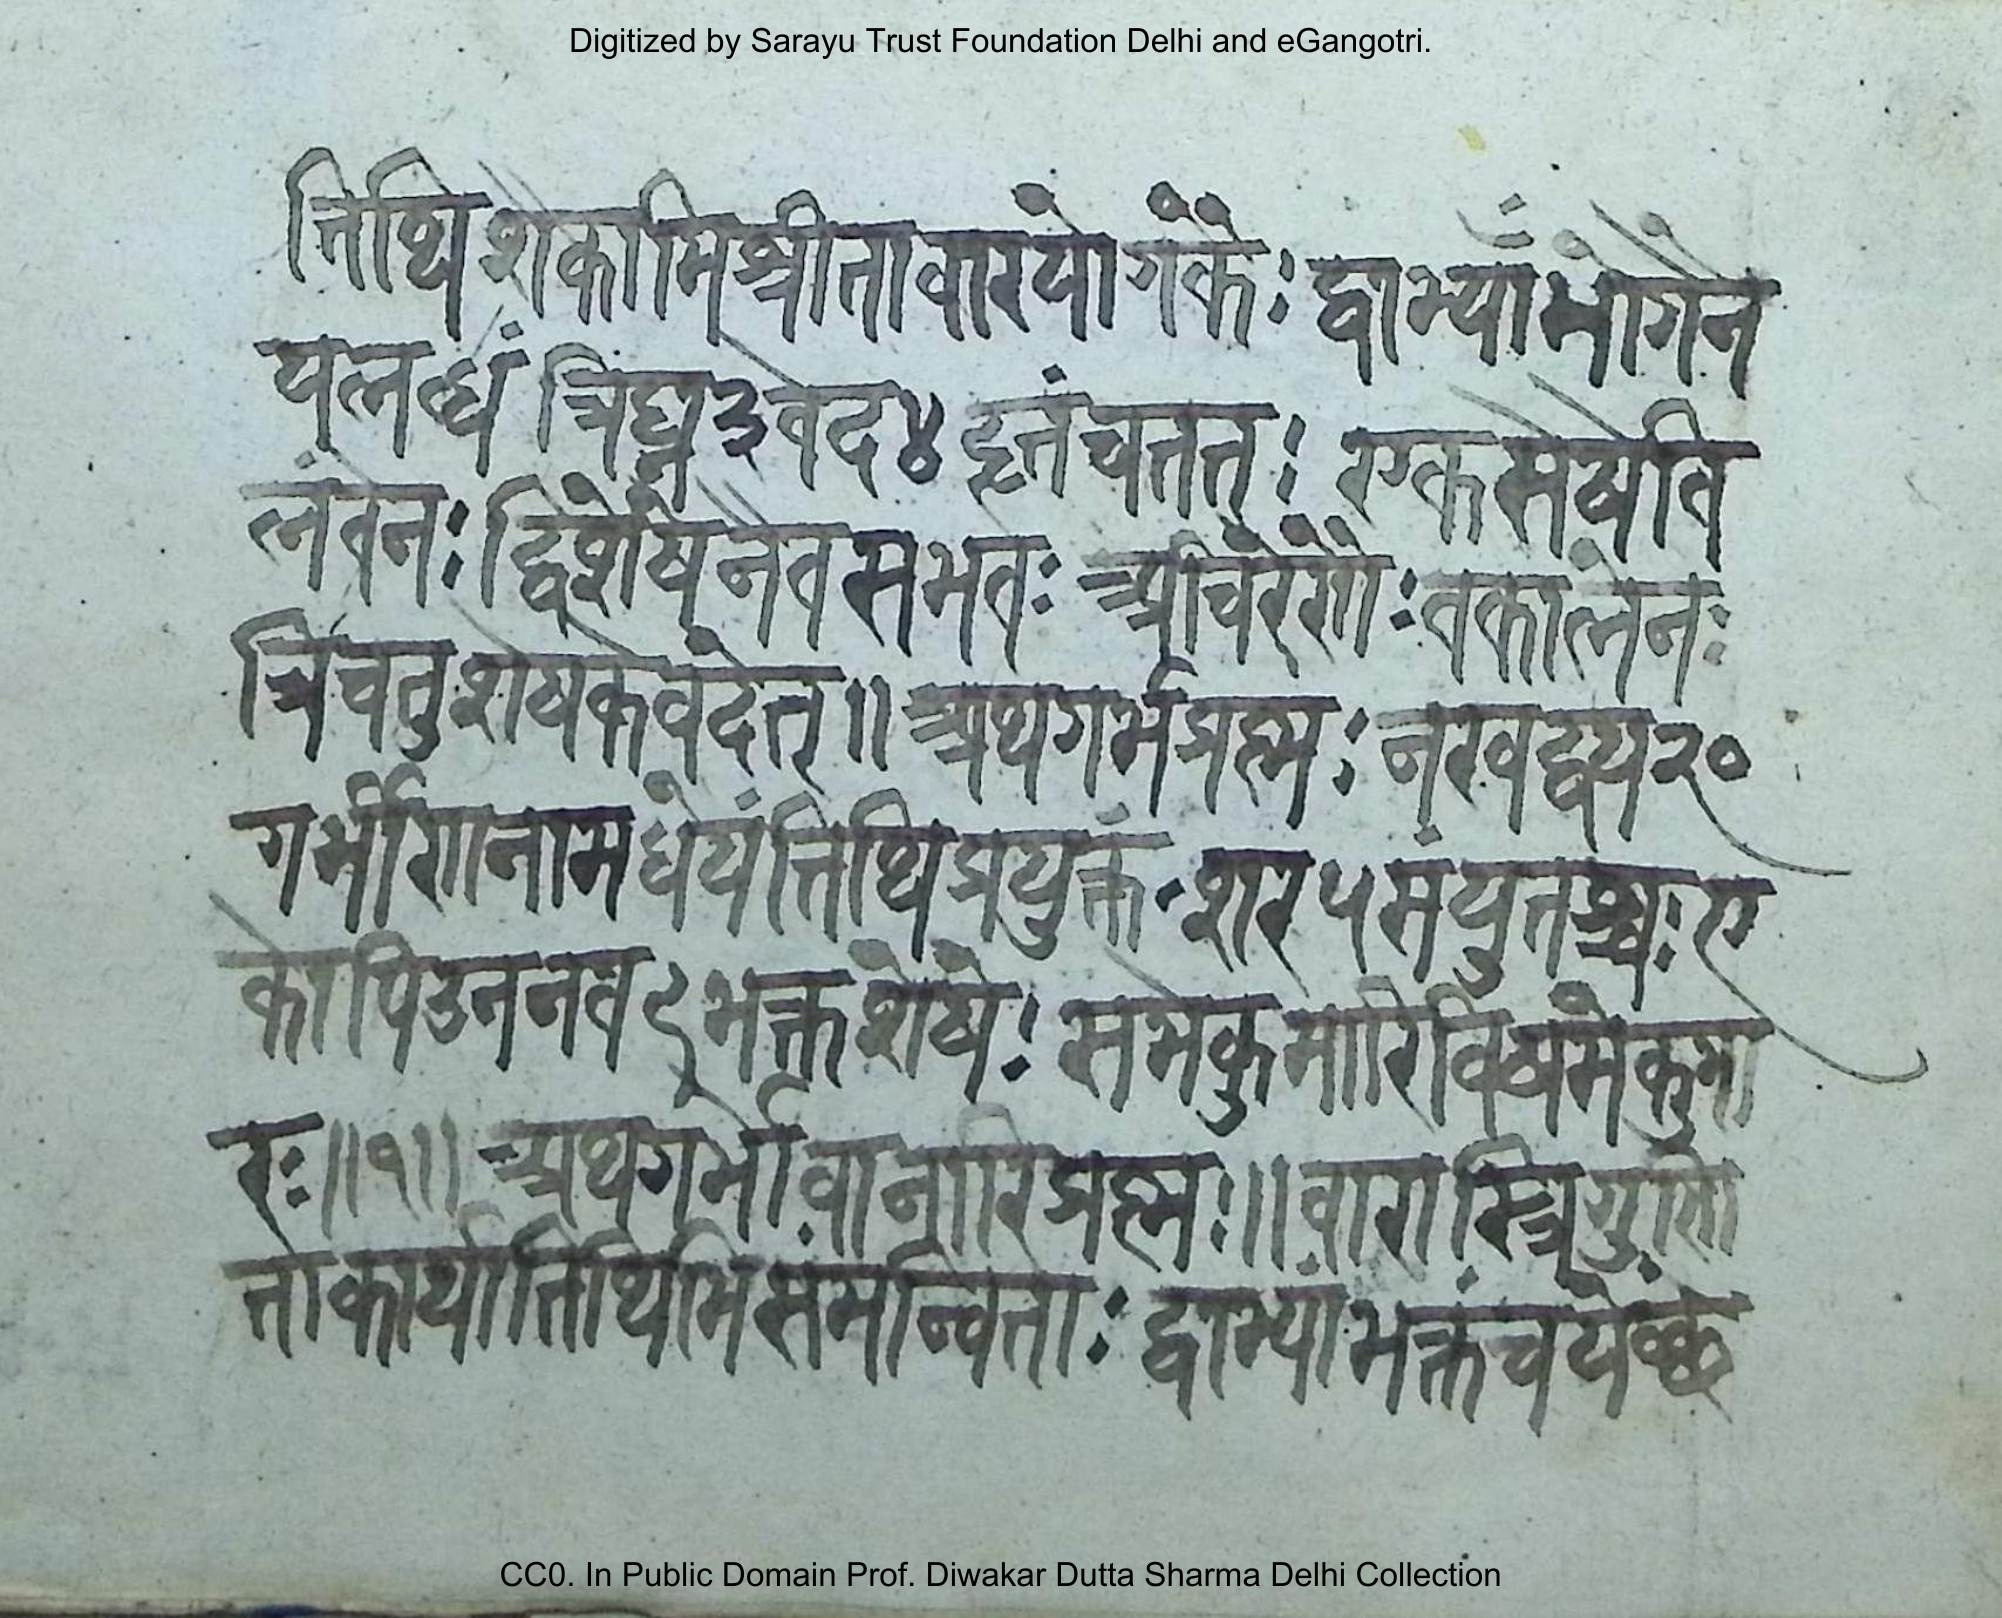 Digitized by Sarayu Trust Foundation Delhi and eGangotri.
त्तिथि शेकामिश्रीतावारयोगकैः द्वाभ्यां भागेन
यल्लब्धं त्रिघ्न ३ वेद ४ हृतं चतत्तः एकसेषेवि
लंवेनः द्विशेषेनेवसभवतः श्रीचरेरोगोः वकालेनः
त्रिचतुशेषकेवदेत् ॥ अथगर्भप्रह्मः नखद्वय २०
गर्भीणीनामधेयंत्तिथिप्रयुक्तंशर ५ संयुतश्चः ए
कोपिउननव ९ भक्तशेषेः समेकुमारिविषमेकुमा
रः ॥ १ ॥ अथगर्भावानारिप्रह्मः ॥ वारास्त्रिगुणि
त्ताकार्यात्तिथिभिसंमन्वित्ताः द्वाभ्यांभक्तंचये
CC0. In Public Domain Prof. Diwakar Dutta Sharma Delhi Collection